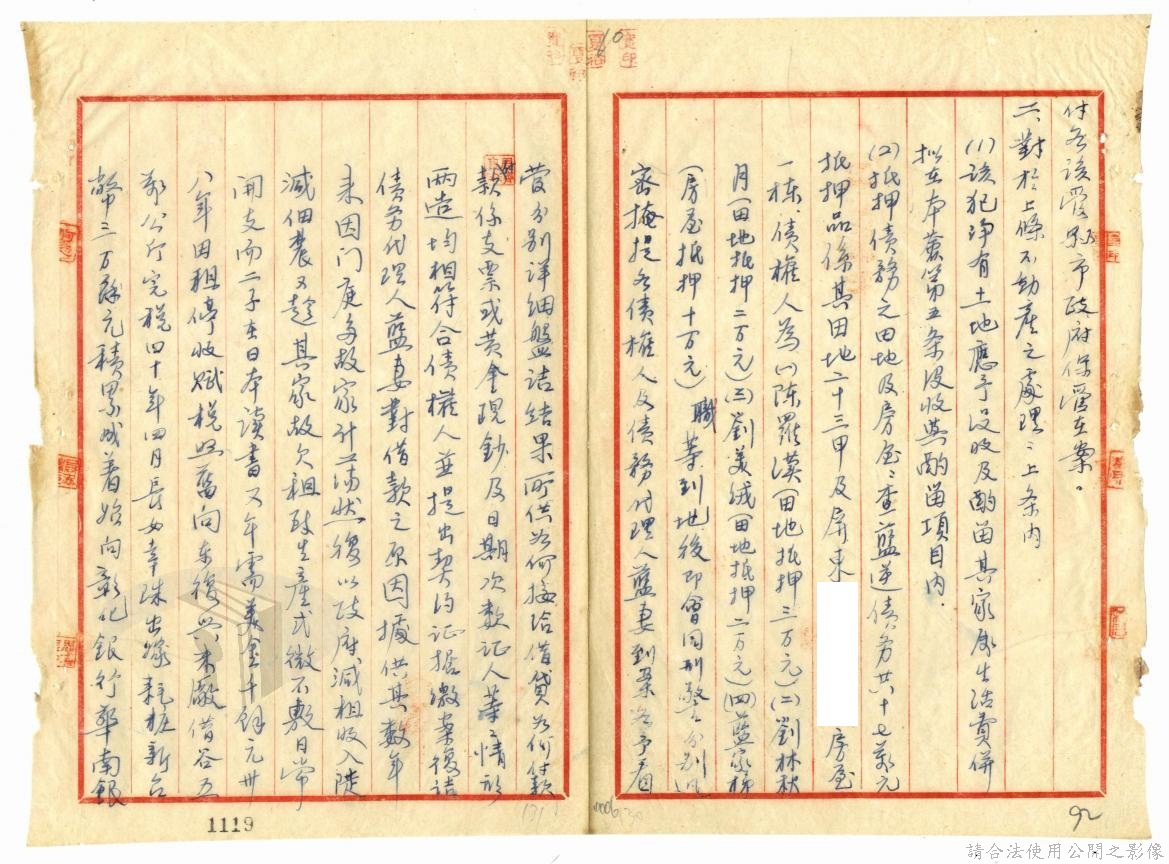 付各該管縣市政府保管在案。
二、對於上條不動產之處理：上条內
(1)該犯踭有土地應予沒收及酌留其家屬生活費併
擬在本黨第五条沒收與酌留項目內．
(2)抵押債務之田地及房屋：查藍逆債务共十七萬元
抵押品係其田地二十三甲及屏東 房屋
一棟、債權人為(一)陳羅漢(田地抵押三万元)(二)劉林秋
月(田地抵押二万元)(三)劉美絨(田地抵押二万元)(四)藍家
(房屋抵押十万元)職等到地後即會同刑警分別
密掩提各債權人及債務代理人藍妻到案各予着
營分別詳細盤詰結果所供為何接給借貸為何付款
款係支票或黃金現鈔及日期次數証人等之情形
兩造均相符合債權人並提出契約証據繳案復詰
債务代理人藍妻對借款之原因據供其數年
來因门庭多故家计蕭然復以政府減租收入陡
減佃農又趁其家故欠租致生產式微不敷日常
開支而二子在日本讀書又年需美金千餘元卅
八年田租停收賦稅照舊向東復興米廠借谷五
萬公斤完稅四十年四月長女幸珠出嫁耗粧新台
幣三万餘元積累成着始向彰化銀行華南銀
92
1119
請合法使用公開之影像